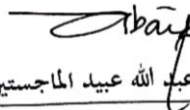 عبد الله عبيد الماجستير